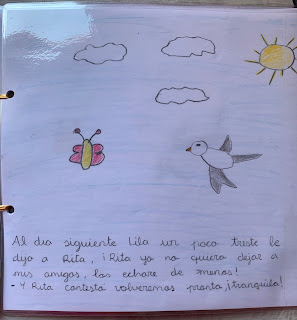 Al dia siguiente Lila un poco triste le
dijo a Rita, ¡Rita yo no quiero dejar a
mis amigos, los echare de menos!
- Y Rita contestá volveremos pronto ¡tranquila!